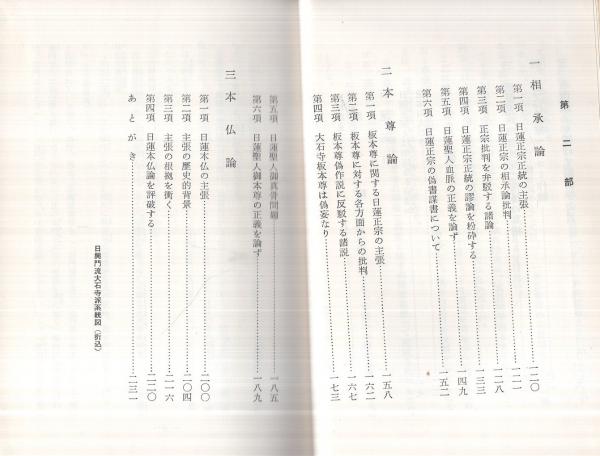 第二部
一 相承論
第一項 日蓮正宗正統の主張……一二〇
第二項 日蓮正宗の相承論批判……一二一
第三項 正宗批判を弁駁する諸論……一二八
第四項 日蓮正宗正統の謬論を粉砕する……一三三
第五項 日蓮聖人血脈の正義を論ず……一四九
第六項 日蓮正宗の偽書謀書について……一五二
二 本尊論
第一項 板本尊に関する日蓮正宗の主張……一五八
第二項 板本尊に対する各方面からの批判……一六二
第三項 板本尊偽作説に反駁する諸説……一六七
第四項 大石寺板本尊は偽妄なり……一七三
第五項 日蓮聖人御真骨問題……一八五
第六項 日蓮聖人御本尊の正義を論ず……一八九
三 本仏論
第一項 日蓮本仏の主張……二〇〇
第二項 主張の歴史的背景……二〇四
第三項 主張の根拠を衝く……二一六
第四項 日蓮本仏論を評破する……二二〇
あとがき……二三一
日興門流大石寺派系統図(折込)